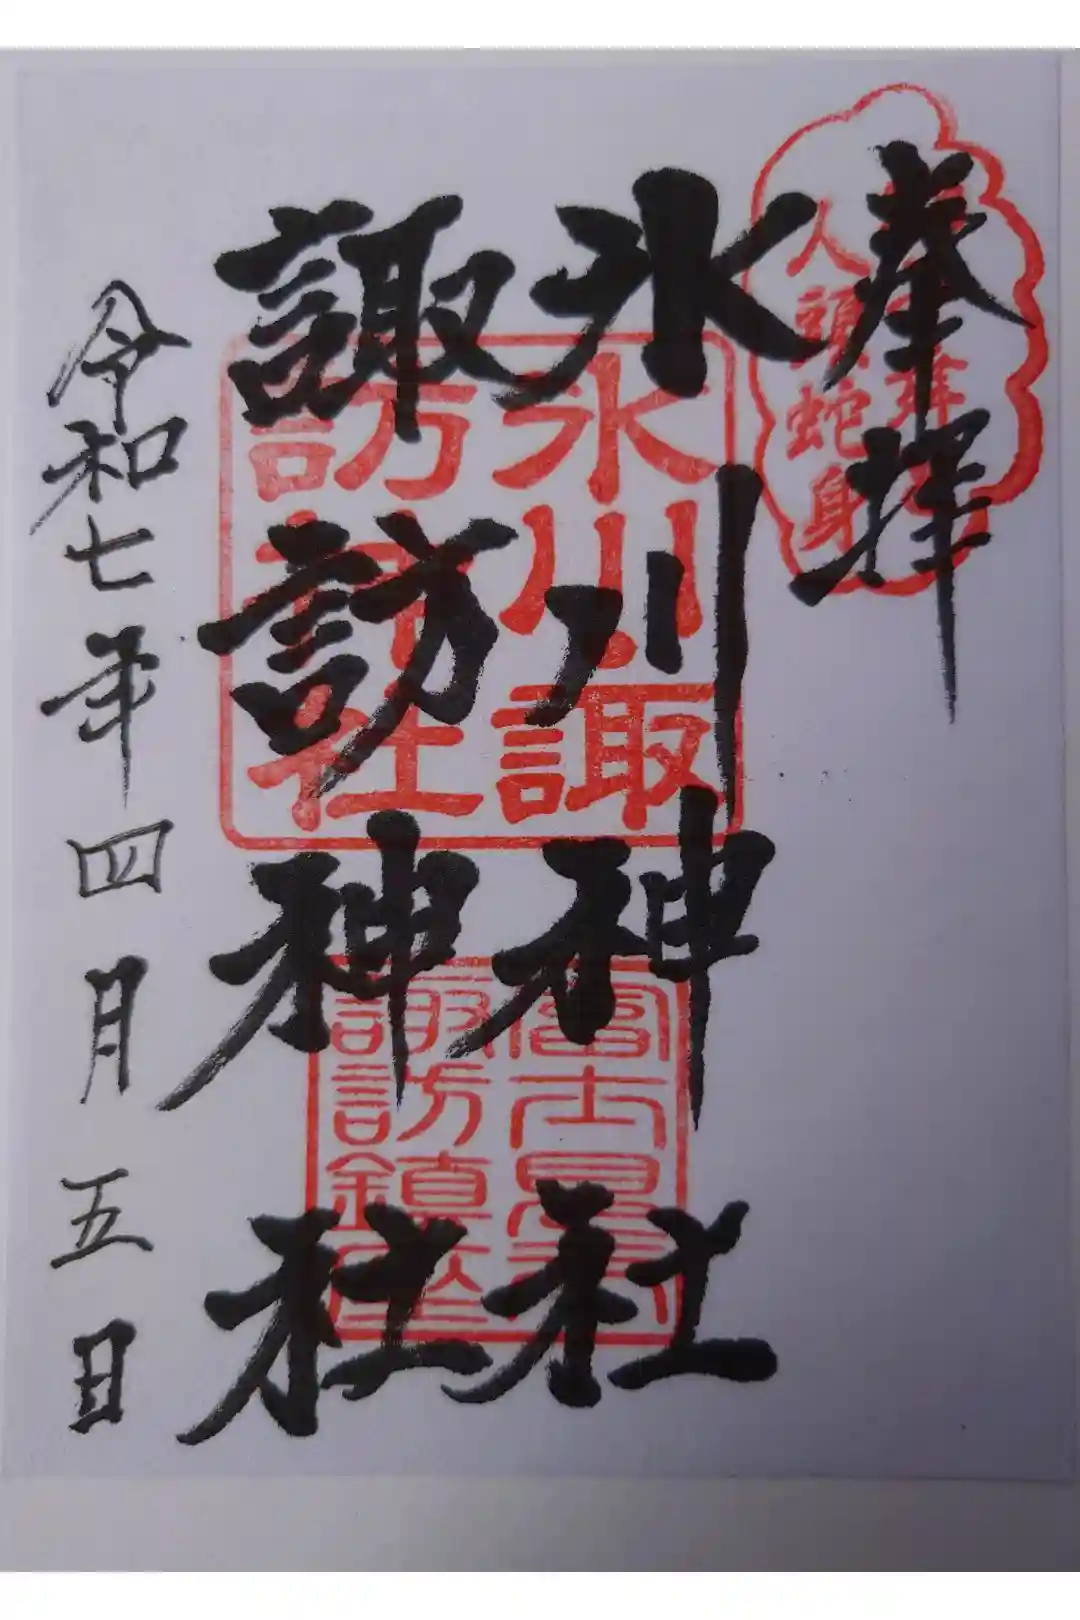 奉拝
氷川神社
諏訪神社
令和七年四月五日
人頭蛇身
氷川諏
訪神社
諏訪鎮座